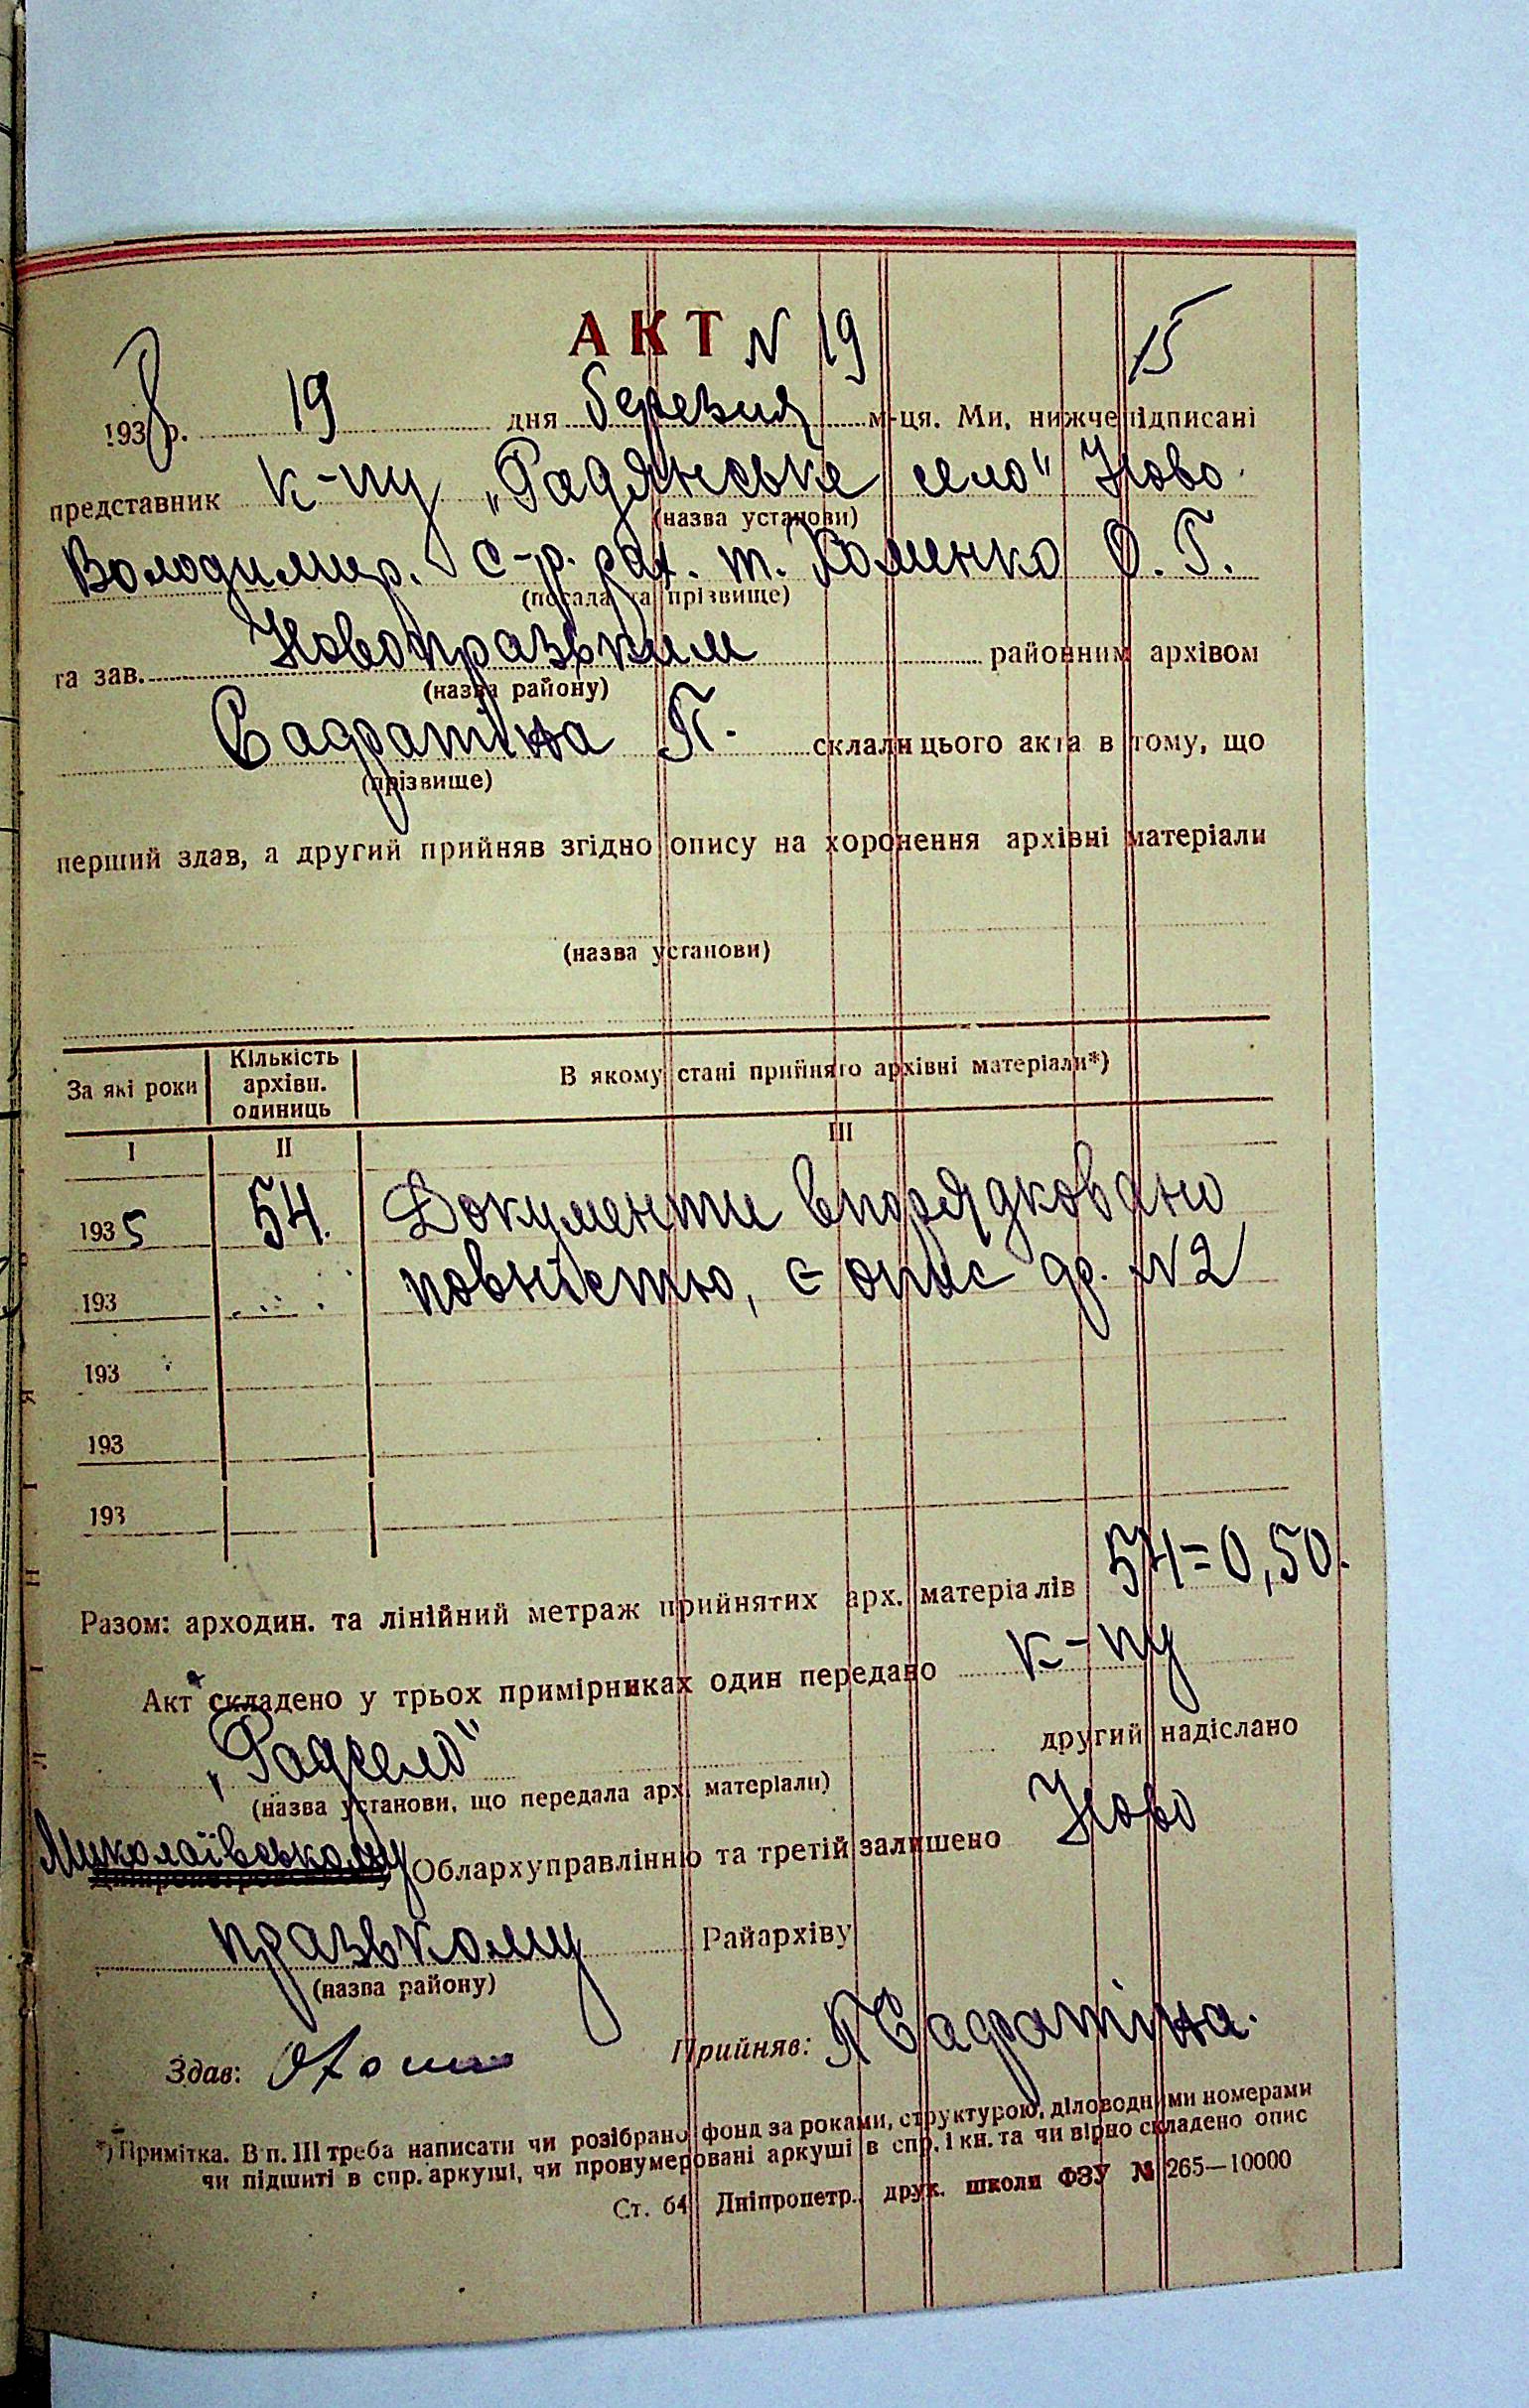 АКТ N 19
15
1938 р. 19 дня березня м-ця. Ми, нижче підписані
представник к-пу „Радянське село" Ново
(назва установи)
Володимир. с-р. рах. т. Хоменко О. Г.
(посада та прізвище)
та зав. Новопразьким районним архівом
(назва району)
Садратіна П. склали цього акта в тому, що
(прізвище)
перший здав, а другий прийняв згідно опису на хоронення архівні матеріали
(назва установи)
За які роки Кількість архівн. одиниць В якому стані прийнято архівні матеріали*)
I II III
1935 54. Документи впорядковано
193 повністю, є опис др. N2
193
193
193
Разом: арходин. та лінійний метраж прийнятих арх. матеріалів 54=0,50.
Акт складено у трьох примірниках один передано к-пу
„Радсело" другий надіслано
(назва установи, що передала арх. матеріали)
Миколаївському Облархуправлінню та третій залишено Ново
празькому Райархіву
(назва району)
Здав: Прийняв: П Садратіна.
*) Примітка. В п. III треба написати чи розібрано фонд за роками, структурою, діловодними номерами
чи підшиті в спр. аркуші, чи пронумеровані аркуші в спр. і кн. та чи вірно складено опис
Ст. 64 Дніпропетр. друк. школи ФЗУ № 265—10000